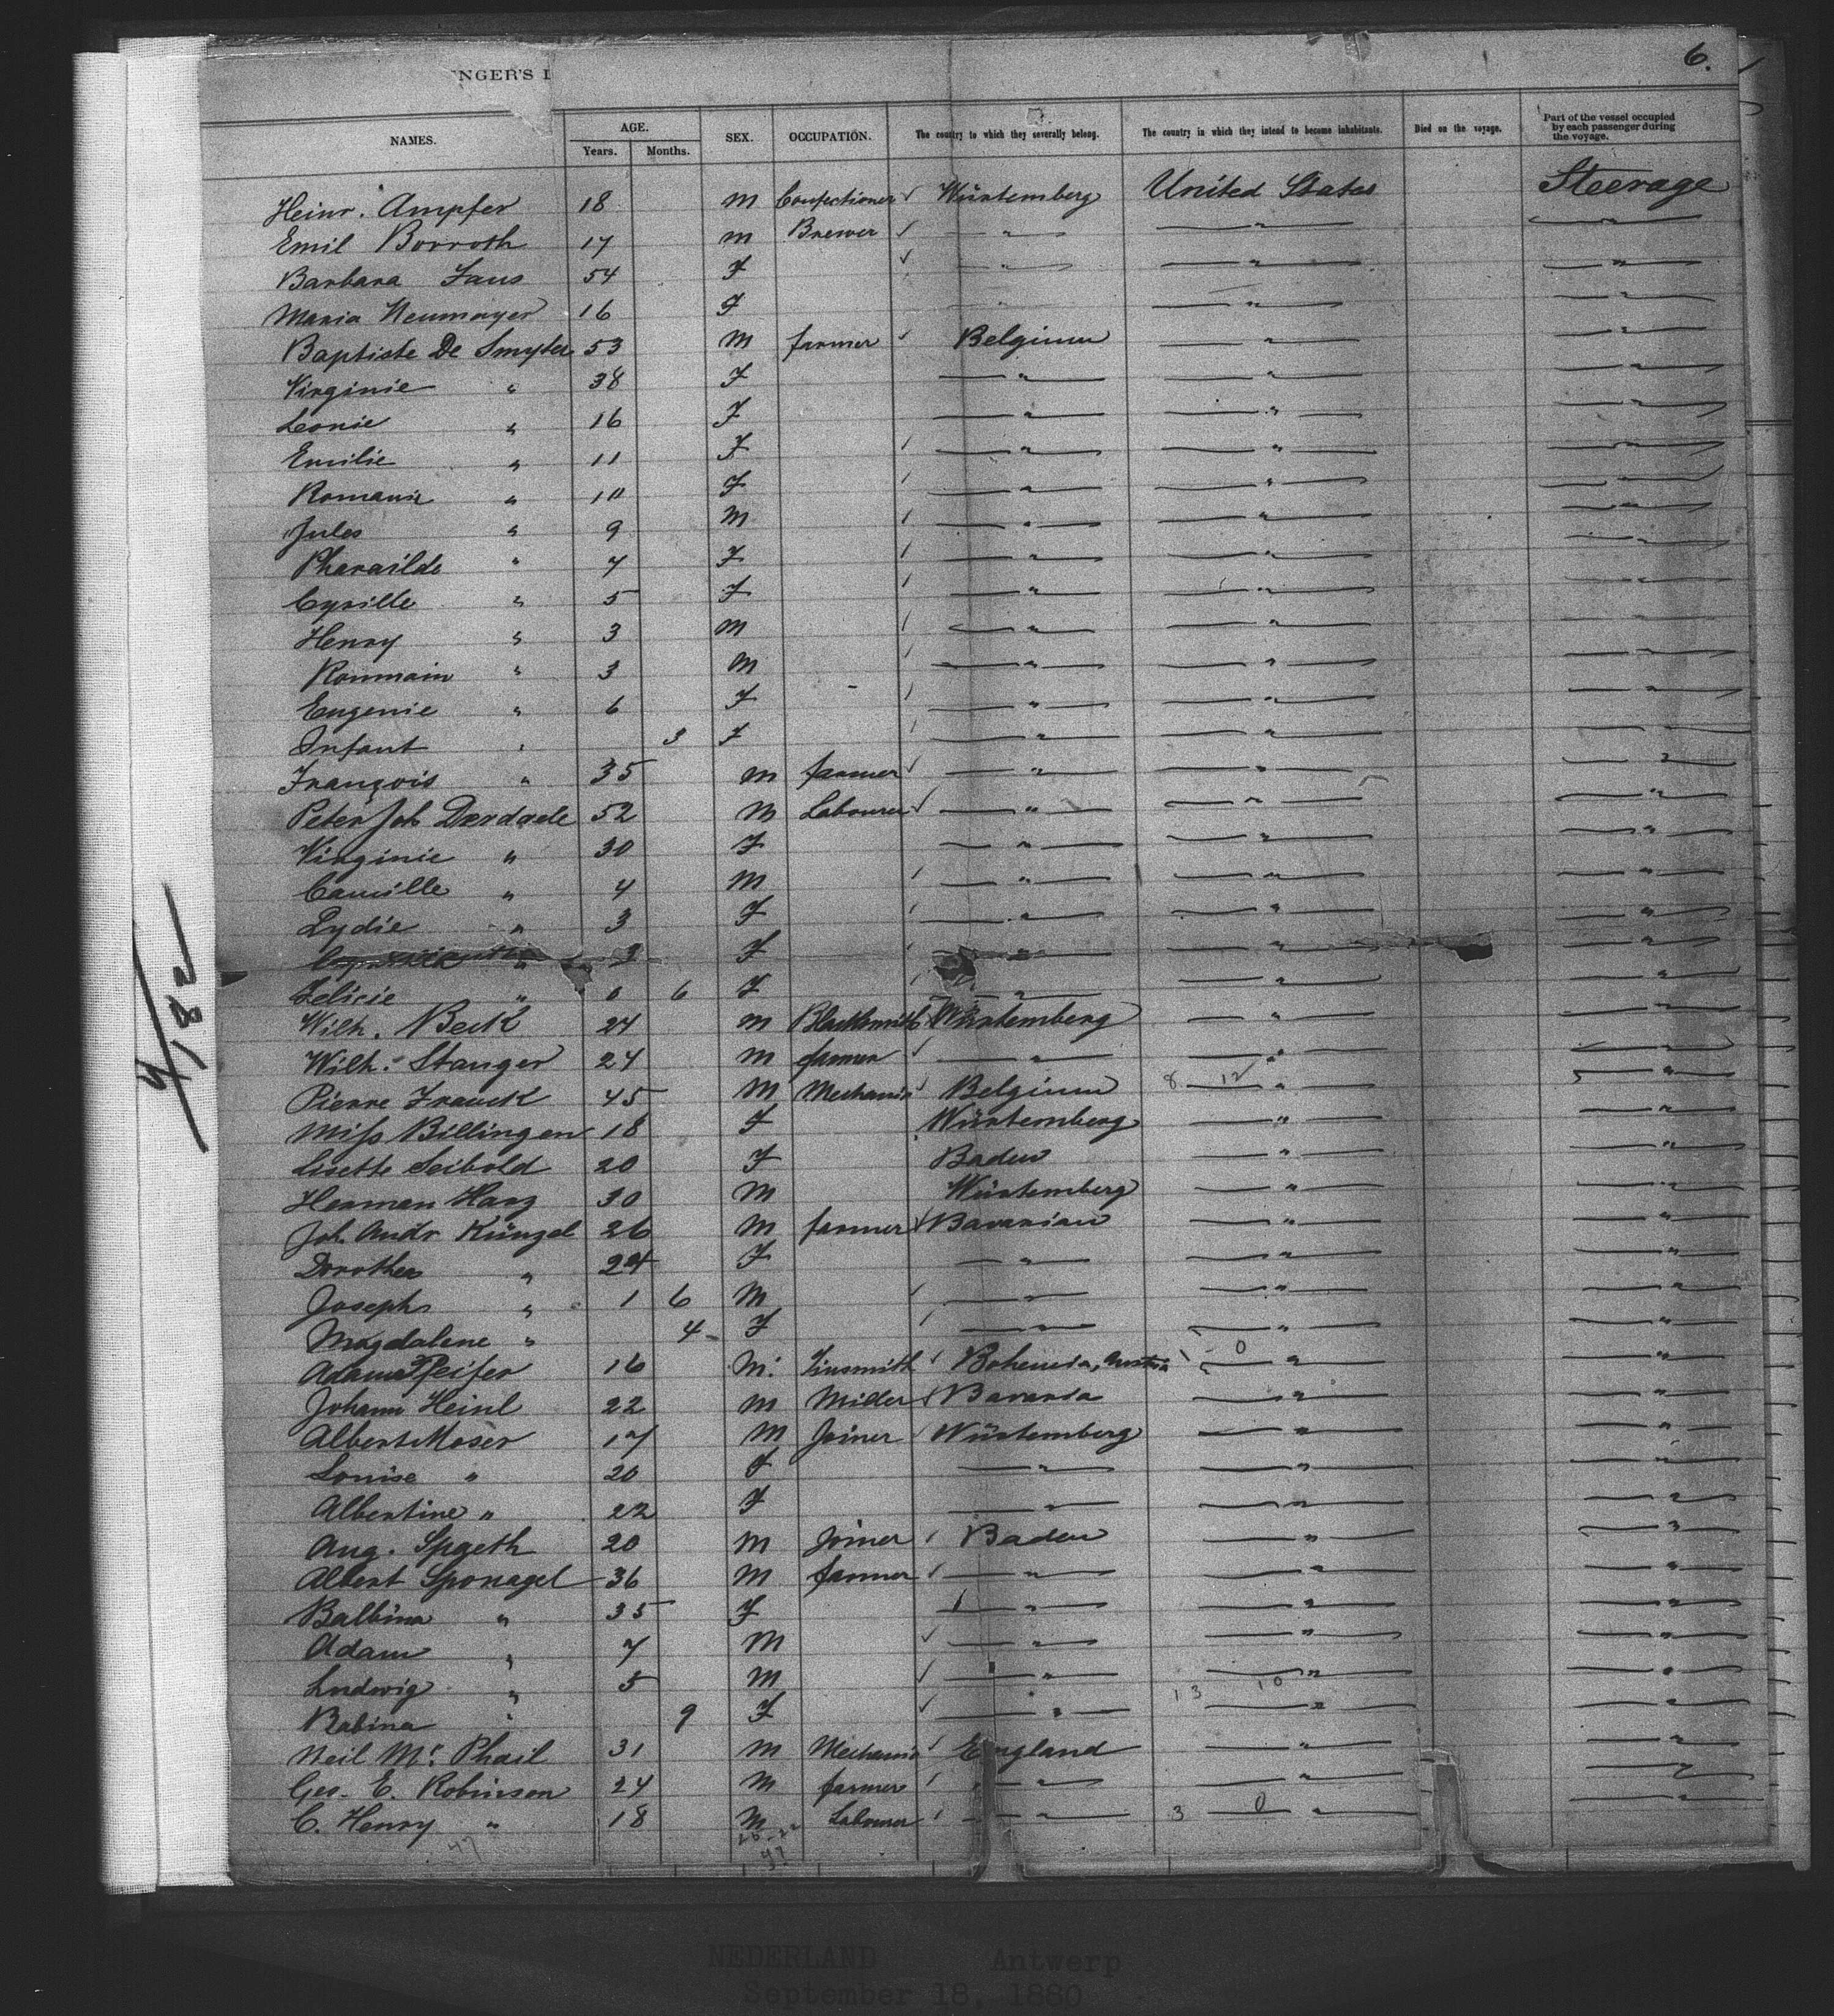 6.
ENGER'S L
NAMES. AGE. Years. Months. SEX. OCCUPATION. The country to which they severally belong. The country in which they intend to become inhabitants. Died on the voyage. Part of the vessel occupied by each passenger during the voyage.
Heinr. Ampfer 18 M Confectioner ✓ Würtemberg United States Steerage
Emil Borroth 17 M Brewer ✓ — " — — " — — " —
Barbara Faus 54 F ✓ — " — — " — — " —
Maria Neumayer 16 F " — " — — " —
Baptiste De Smyter 53 M farmer ✓ Belgium — " — — " —
Virginie " 38 F — " — — " — — " —
Leonie " 16 F — " — — " — — " —
Emilie " 11 F — " — — " — — " —
Romanie " 10 F — " — — " — — " —
Jules " 9 M — " — — " — — " —
Pharailde " 7 F — " — — " — — " —
Cyrille " 5 F — " — — " — — " —
Henry " 3 M — " — — " — — " —
Rommain " 3 M — " — — " — — " —
Eugenie " 6 F — " — — " — — " —
Infant " 3 F — " — — " — — " —
François " 35 M farmer ✓ — " — — " — — " —
Peter Joh Derdaele 52 M Labourer ✓ — " — — " — — " —
Virginie " 30 F — " — — " — — " —
Camille " 4 M — " — — " — — " —
Lydie " 3 F — " — — " — — " —
" F — " — — " — — " —
Felicie " 0 6 F — " — — " — — " —
Wilh. Beck 24 M Blacksmith Würtemberg — " — — " —
Wilh. Stanger 24 M farmer ✓ — " — — " — — " —
Pierre Franck 45 M Mechanic ✓ Belgium 8 12 — " — — " —
Miss Billingen 18 F Würtemberg — " — — " —
Lisette Seibold 20 F Baden — " — — " —
Herman Harz 30 M Würtemberg — " — — " —
Joh. Andr Künzel 26 M farmer ✓ Bavarian — " — — " —
Dorothea " 24 F — " — — " — — " —
Joseph " 1 6 M — " — — " — — " —
Magdalene " 4 F — " — — " — — " —
Adam Pfeifer 16 M. Tinsmith ✓ Bohemia, Austria 0 — " — — " —
Johann Heinl 22 M Miller ✓ Bavaria — " — — " —
Albert Moser 17 M Joiner Würtemberg — " — — " —
Louise " 20 F — " — — " — — " —
Albertine " 22 F — " — — " — — " —
Aug. Spaeth 20 M Joiner Baden — " — — " —
Albert Sponagel 36 M farmer ✓ — " — — " — — " —
Balbina " 35 F — " — — " — — " —
Adam " 7 M ✓ — " — — " — — " —
Ludwig " 5 M ✓ — " — — " — — " —
Babina " 9 F ✓ — " — 13 10 — " — — " —
Neil Mc. Phail 31 M Mechanic ✓ England — " — — " —
Geo. E. Robinson 24 M farmer — " — — " — — " —
C. Henry " 18 M Labourer — " — 3 0 — " — — " —
47 47
4/82
NEDERLAND Antwerp
September 18, 1880